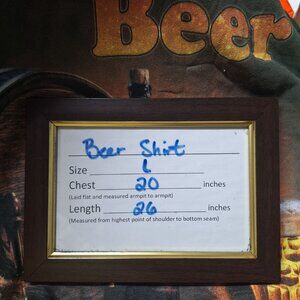 Beer
Beer Shirt
Size L
Chest 20 inches
(Laid flat and measured armpit to armpit)
Length 26 inches
(Measured from highest point of shoulder to bottom seam)